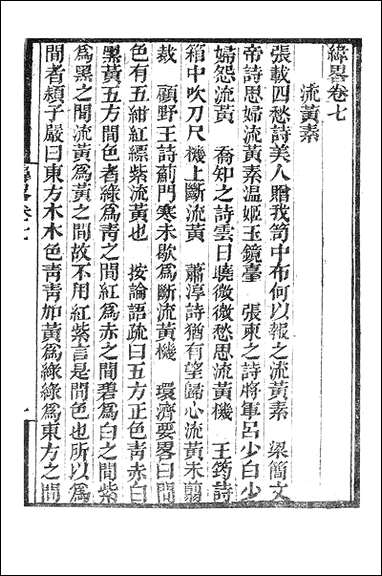 緣畧卷七
流黃素
張載四愁詩美人贈我笥中布何以報之流黃素　梁簡文
帝詩思婦流黃素温姬玉鏡臺　張柬之詩將軍呂少白少
婦怨流黃　喬知之詩雲日曉微微愁思流黃機　王筠詩
箱中吹刀尺機上斷流黃　蕭淳詩猶有望歸心流黃未翦
裁　顧野王詩薊門寒未歇爲斷流黃機　環濟要畧曰間
色有五紺紅縹紫流黃也　按論語疏曰五方正色青赤白
黑黃五方間色者綠爲青之間紅爲赤之間碧爲白之間紫
爲黑之間流黃爲黃之間故不用紅紫言是間色也所以爲
間者頴子嚴曰東方木木色青青加黃爲綠綠爲東方之間
卷七
一